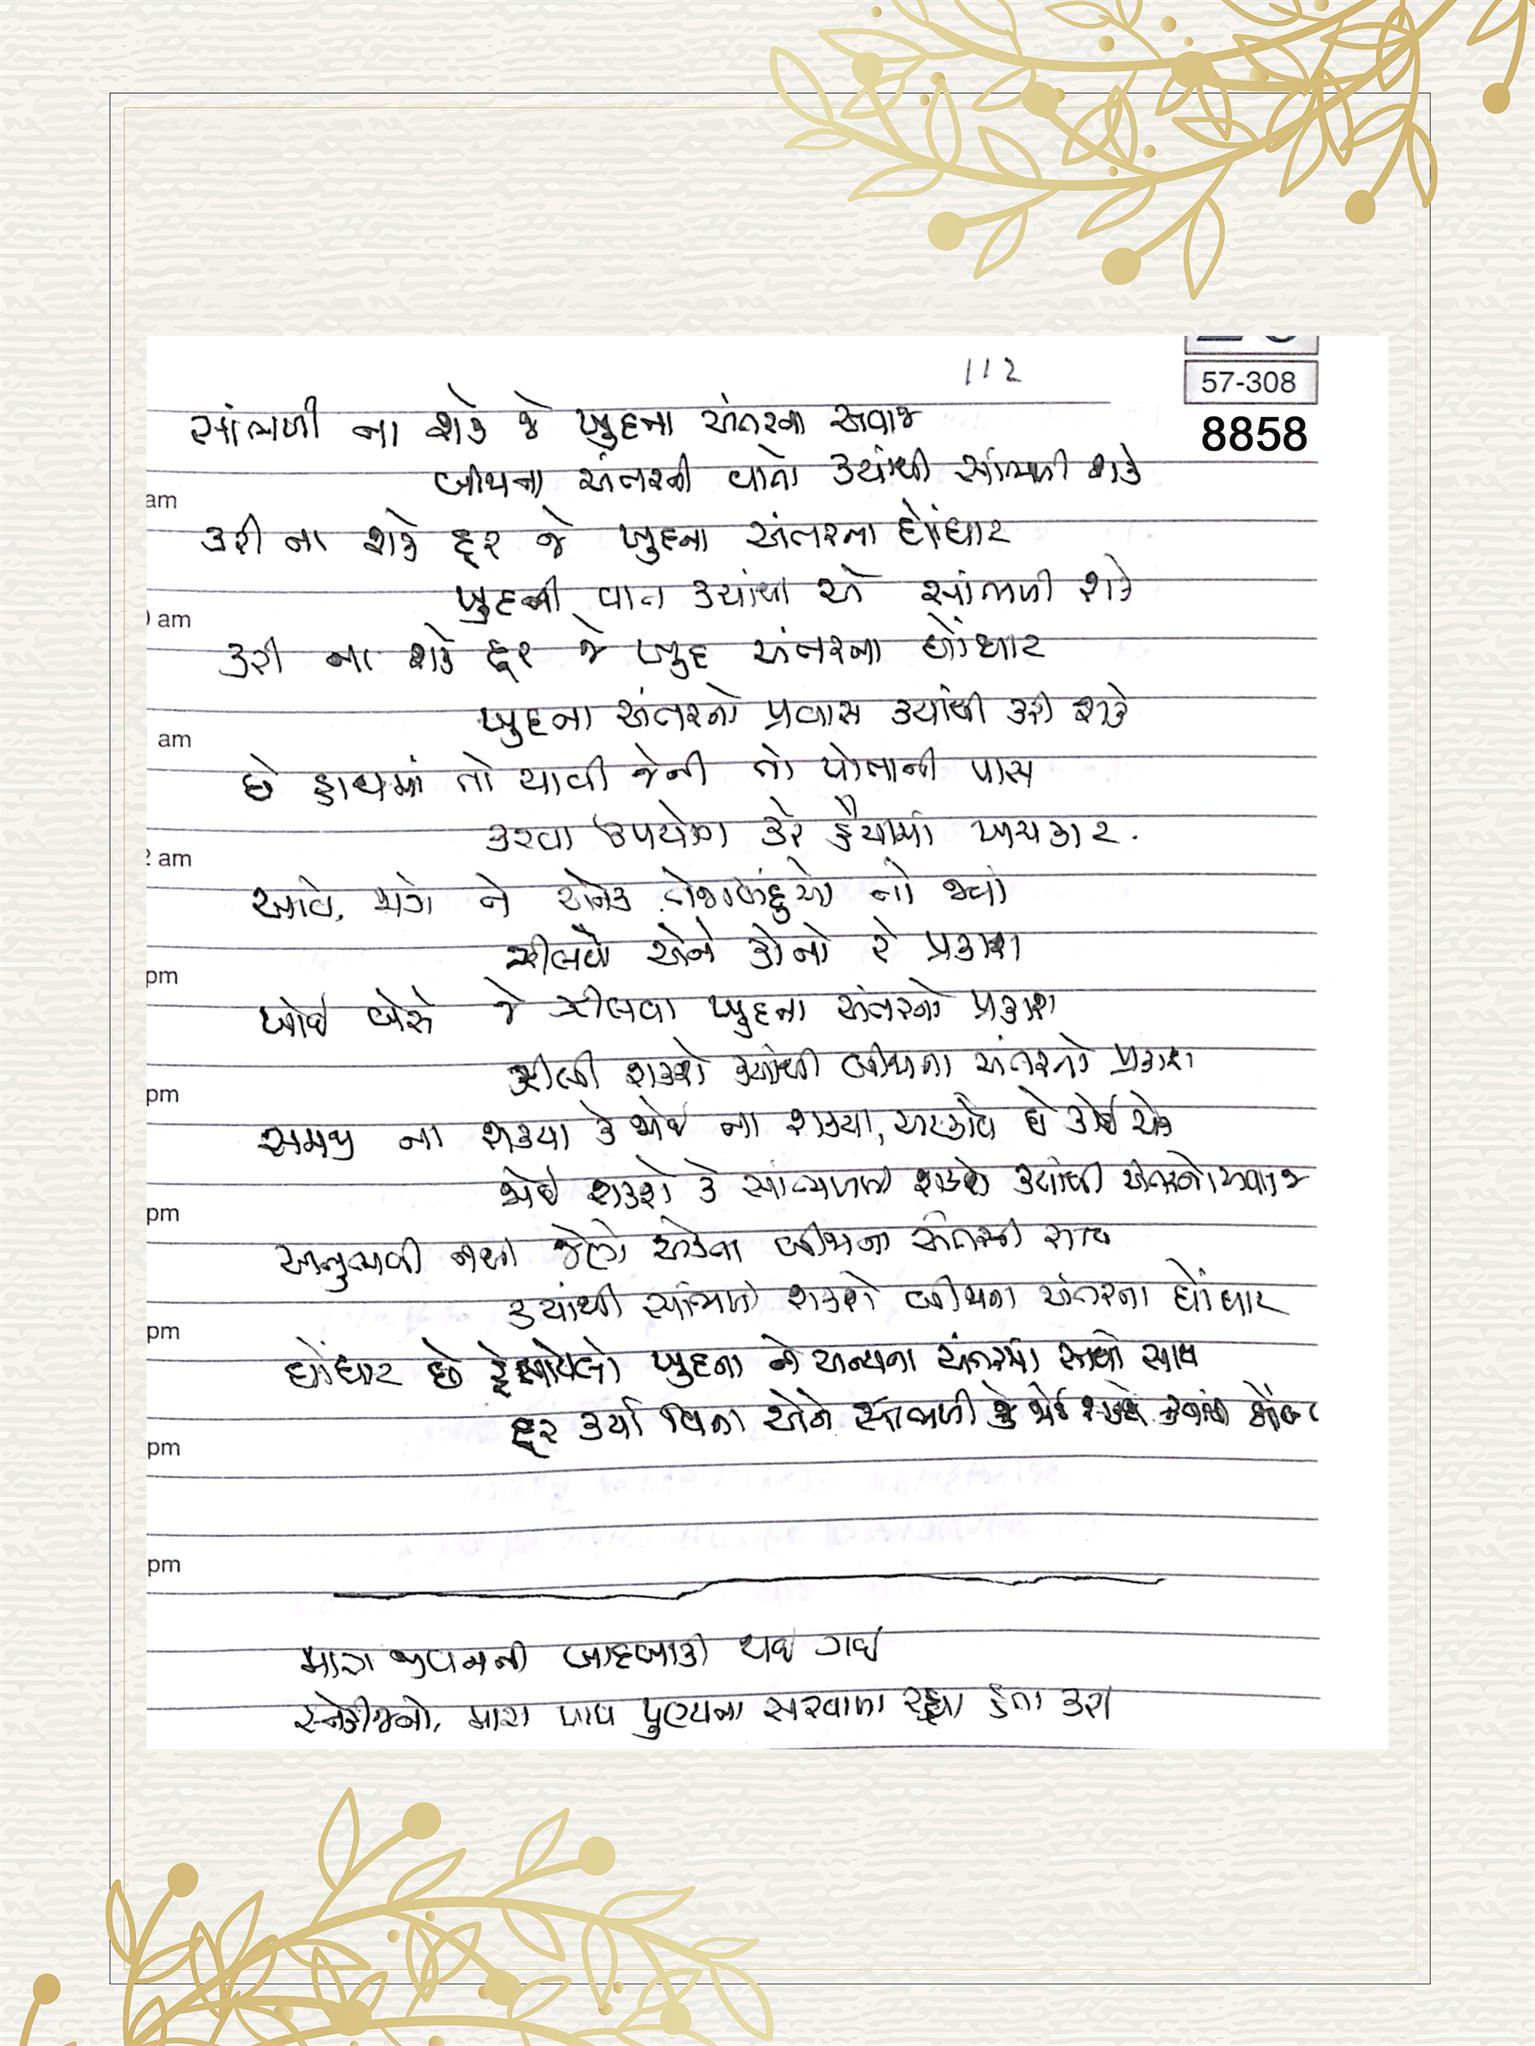 112
57-308
8858
સાંભળી ના શકે જે ખુદના અંતરના અવાજ
બીજાના અંતરની વાતો ક્યાંથી સાંભળી શકે
am
કરી ના શકે દૂર જે ખુદના અંતરના ઘોંઘાટ
ખુદની વાત ક્યાંથી એ સાંભળી શકે
am
કરી ના શકે દૂર જે ખુદ અંતરના ઘોંઘાટ
ખુદના અંતરનો પ્રવાસ ક્યાંથી કરી શકે
am
છે હાથમાં તો ચાવી જેની તો પોતાની પાસ
કરવા ઉપયોગ કેર હૈયામાં ખચકાટ.
2 am
આવે, મળે ને અનેક તેજબિંદુઓ નો જ્યાં
ઝીલવો એને કોનો રે પ્રકાશ
pm
ખોઈ બેસે જે ઝીલવા ખુદના અંતરનો પ્રકાશ
ઝીલી શકશે ક્યાંથી બીજાના અંતરનો પ્રકાશ
pm
સમજી ના શક્યા કે જોઈ ના શક્યા, અટકાવે છે કોઈ એક
જોઈ શકશે કે સાંભળી શકશે ક્યાંથી અંતરનો અવાજ
pm
અનુભવી નથી જેણે એકતા બીજાના અંતરની સાચ
ક્યાંથી સાંભળી શકશે બીજાના અંતરના ઘોંઘાટ
pm
ઘોંઘાટ છે ફેલાયેલો ખુદના ને અન્યના અંતરમાં સાથો સાથ
દૂર કર્યા વિના એને સાંભળી કે જોઈ શકશે ક્યાંથી
pm
pm
મારા જીવનની બાદબાકી થઈ ગઈ
સ્નેહીજનો, મારા પાપ પુણ્યના સરવાળા રહ્યા હતા કરી